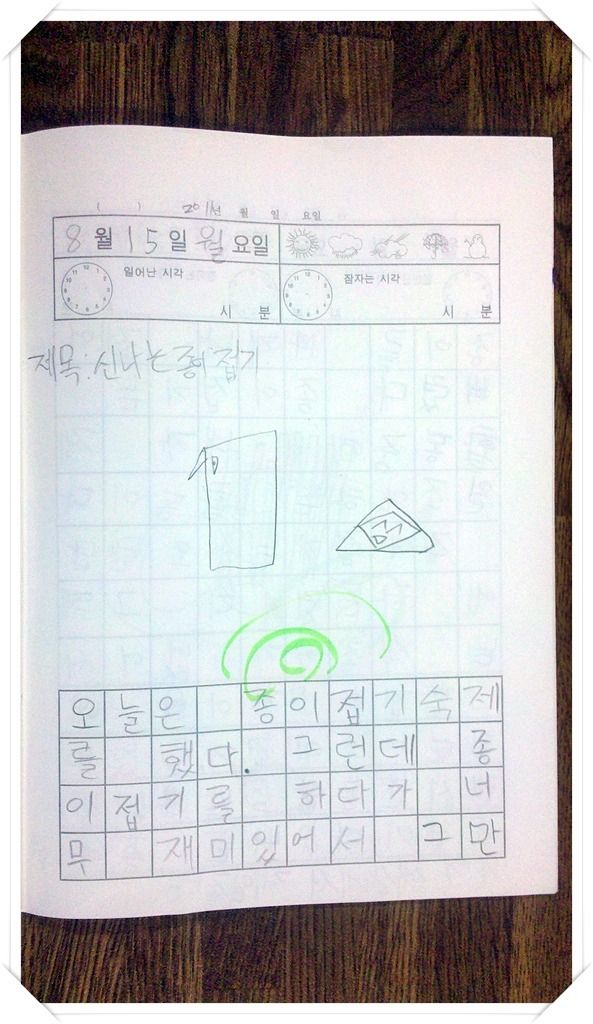 ( ) 2011년 월 일 요일
8월 15일 월요일
일어난 시각
시 분
잠자는 시각
시 분
제목:신나는 종이접기
오늘은 종이접기숙제
를 했다. 그런데 종
이접기를 하다가 너
무 재미있어서 그만